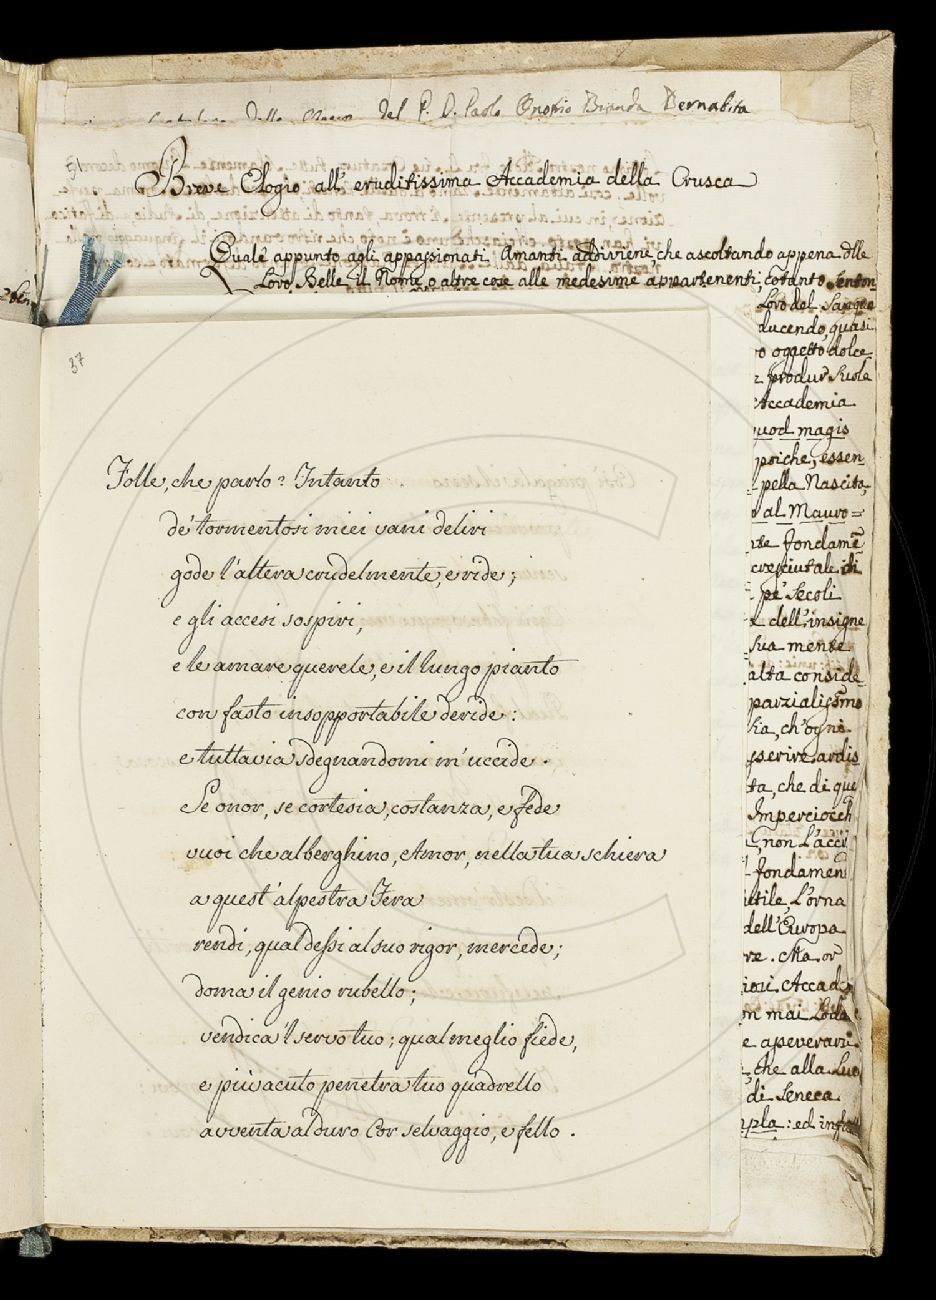 del P. D. Paolo Onofrio Branda Bernabita
51
Breve Elogio all' eruditissima Accademia della Crusca
Quale appunto agli appassionati Amanti addiviene, che ascoltando appena dlle
Loro Belle il Nome, o altre cose alle medesime appartenenti, cotanto senton
Loro del Sangue
ducendo, quasi
o oggetto dolce
produr suole
Accademia
quod magis
poiche, essen
pella Nascita,
o al Mauro=
fondamē
cresciutale di
pe' Secoli
dell'insigne
sua mente
alta conside
parzialissmo
sia, ch'ogni
sserire ardis
ta, che di que
Imperciocch
non L'acci
fondamen
utile, L'orna
dell'Europa
re. Ma or
iosi Accad
on mai Loda
e asseverare
che alla Luo
di Seneca
mpla: ed infa
37
Folle, che parlo? Intanto
de' tormentosi miei vani deliri
gode l'altera crudelmente, e ride;
e gli accesi sospiri,
e le amare querele, e il lungo pianto
con fasto insopportabile deride:
e tuttavia sdegnandomi m'uccide.
Se onor, se cortesia, costanza, e fede
vuoi che alberghino, Amor, nella tua schiera
a quest'alpestra Fera
rendi, qual dessi al suo rigor, mercede;
doma il genio rubello;
vendica 'l servo tuo; qual meglio fiede,
e più acuto penetra tuo quadrello
avventa al duro Cor selvaggio, e fello.